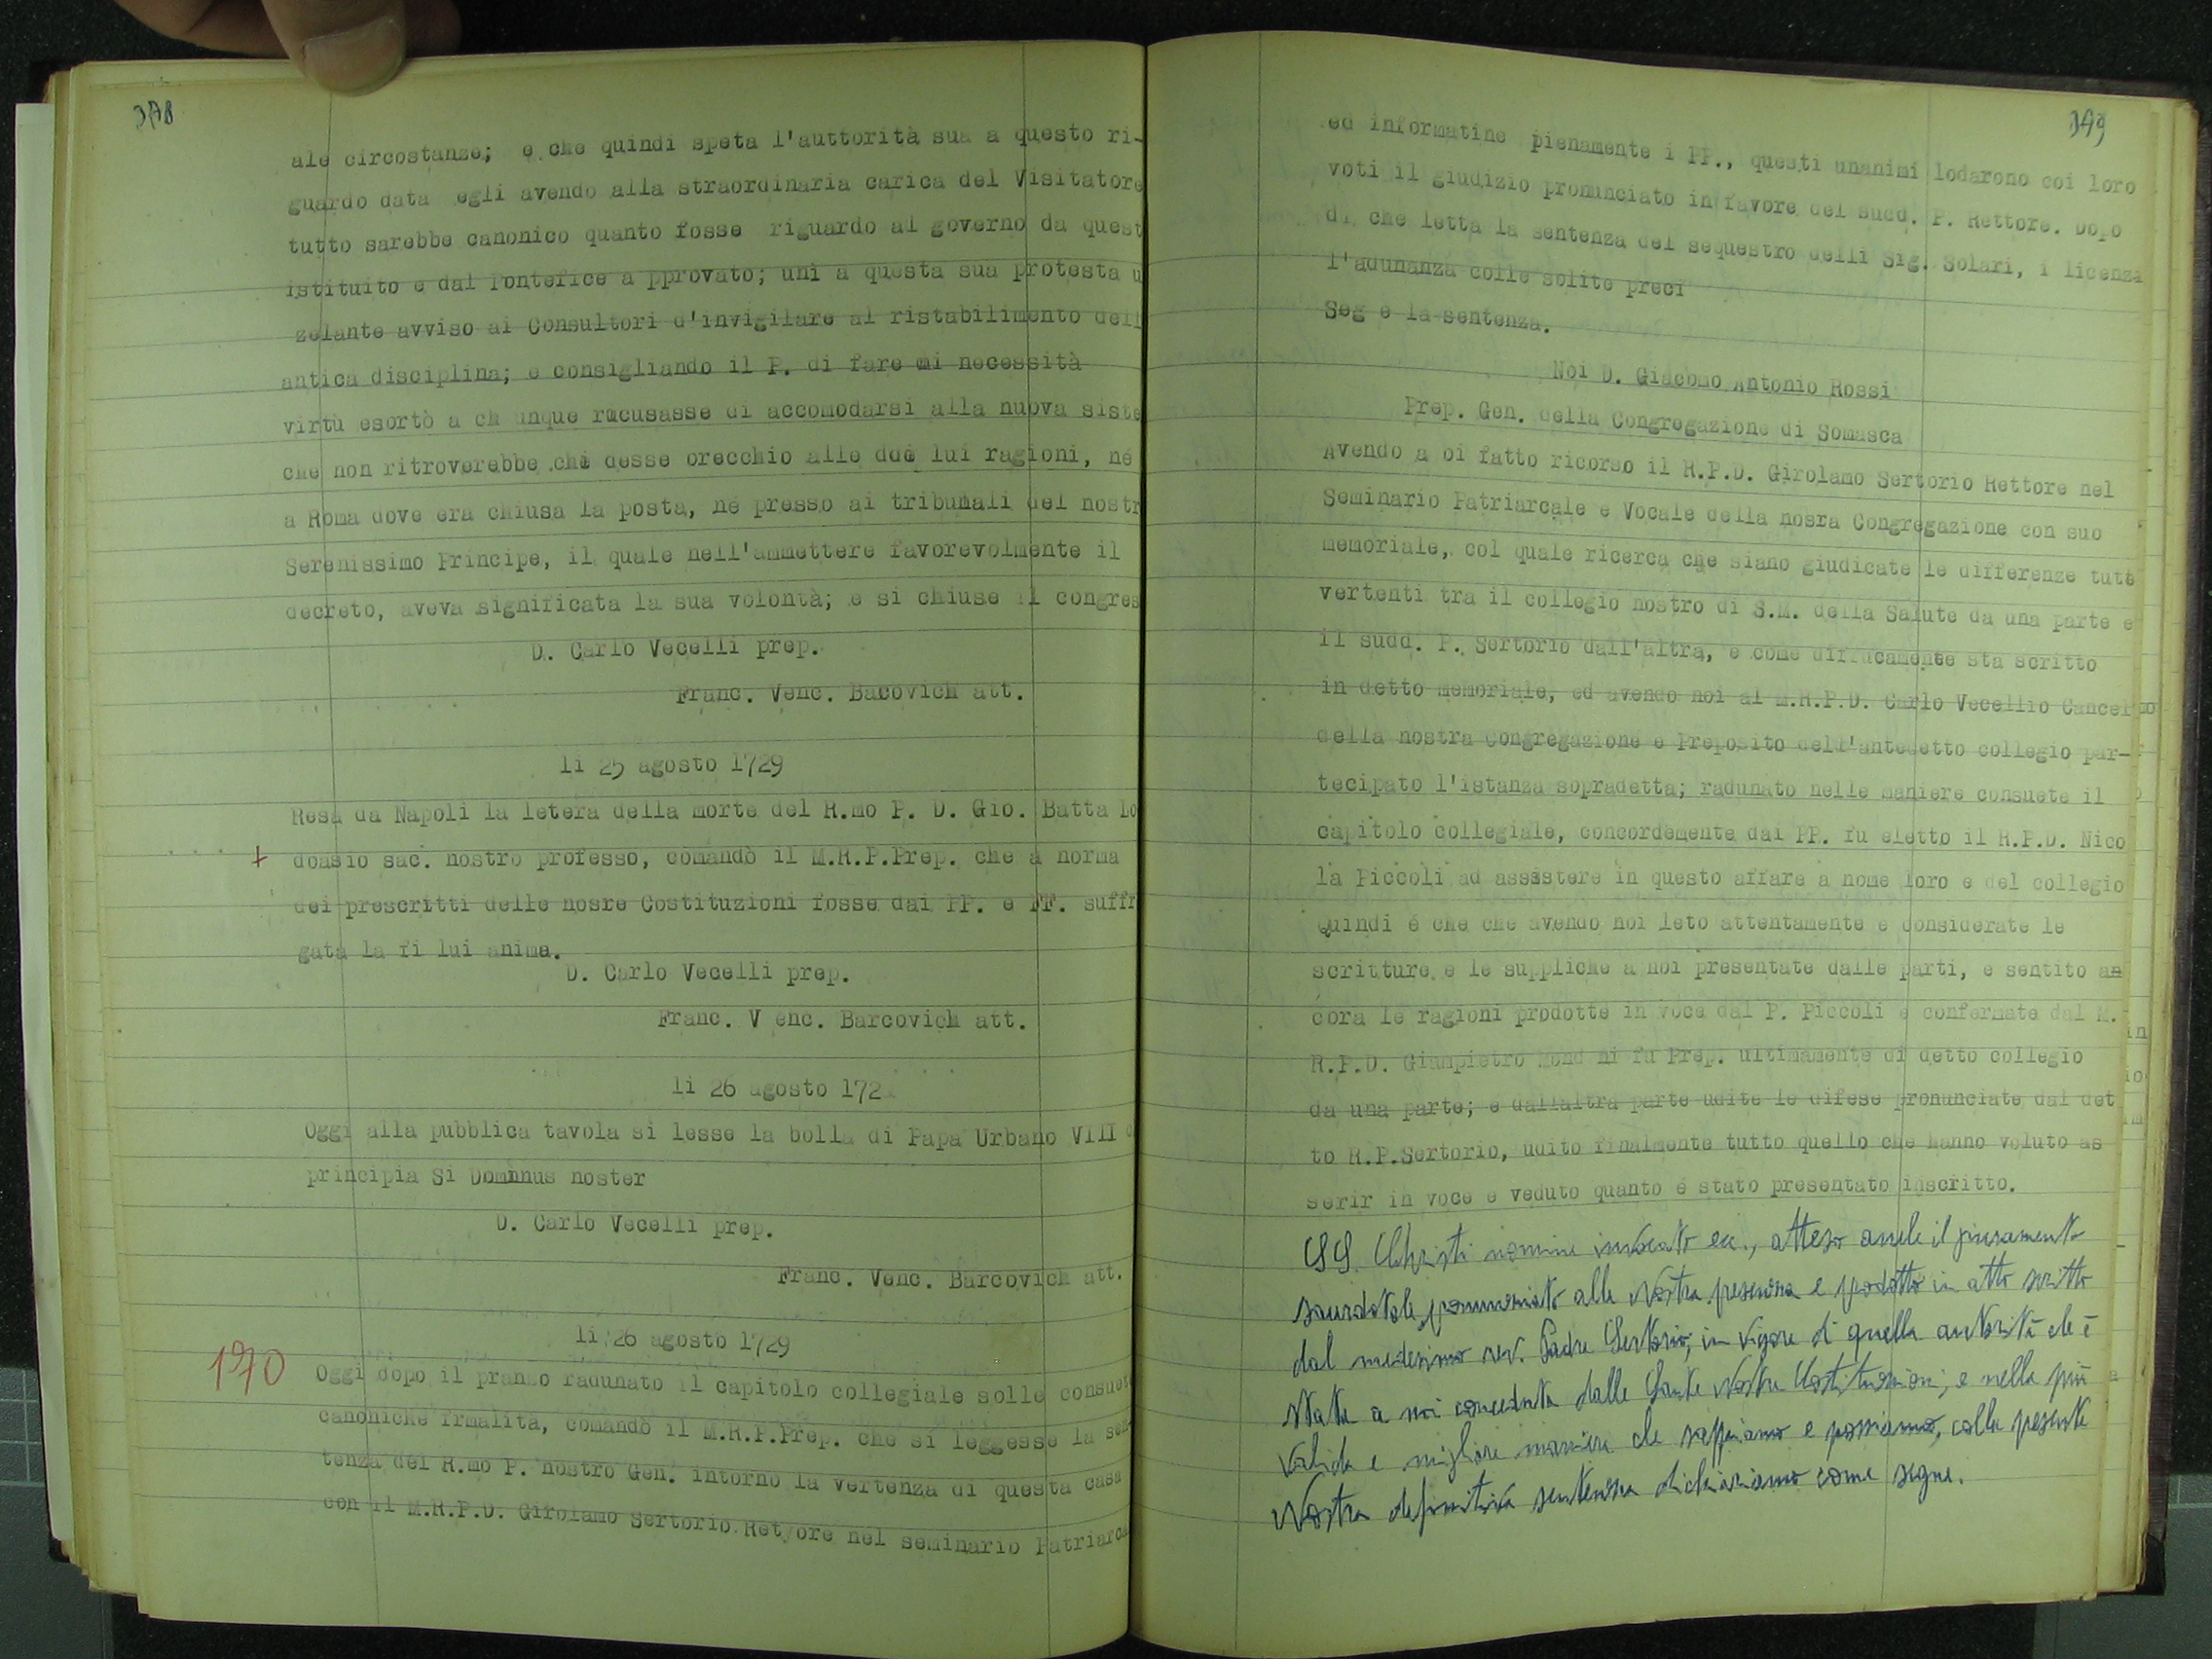 378
ale circostanze; e che quindi speta l'auttorità sua a questo ri-
guardo data egli avendo alla straordinaria carica del Visitatore
tutto sarebbe canonico quanto fosse riguardo al governo da quest
istituito e dal Pontefice a pprovato; unì a questa sua protesta u
zelante avviso ai Consultori d'invigilare al ristabilimento dell
antica disciplina; e consigliando il P. di fare di necessità
virtù esortò a ch unque rucusasse di accomodarsi alla nuova siste
che non ritroverebbe chi desse orecchio alle due lui ragioni, né
a Roma dove era chiusa la posta, né presso ai tribunali del nostr
Serenissimo Principe, il quale nell'ammettere favorevolmente il
decreto, aveva significata la sua volontà; e si chiuse il congres
D. Carlo Vecelli prep.
Franc. Venc. Bacovich att.
li 25 agosto 1729
Resa da Napoli la letera della morte del R.mo P. D. Gio. Batta Lo
+ dcasio sac. nostro professo, comandò il M.R.P.Prep. che a norma
dei prescritti delle nosre Costituzioni fosse dai PP. e FF. suffr
gata la fi lui anima.
D. Carlo Vecelli prep.
Franc. V enc. Barcovich att.
li 26 agosto 172
Oggi alla pubblica tavola si lesse la bolla di Papa Urbano VIII c
principia Si Dominus noster
D. Carlo Vecelli prep.
Franc. Venc. Barcovich att.
li 26 agosto 1729
170
Oggi dopo il pranzo radunato il capitolo collegiale solle consuet
canoniche frmalità, comandò il M.R.P.Prep. che si leggesse la sen
tenza del R.mo P. nostro Gen. intorno la vertenza di questa casa
con il M.R.P.D. Girolamo Sertorio Ret ore nel seminario Patriarca
379
ed informatine pienamente i PP., questi unanimi lodarono coi loro
voti il giudizio pronunciato in favore del sudd. P. Rettore. Dopo
di che letta la sentenza del sequestro delli Sig. Solari, i licenzi
l'adunanza colle solite preci
Seg e la sentenza.
Noi D. Giacomo Antonio Rossi
Prep. Gen. della Congregazione di Somasca
Avendo a oi fatto ricorso il R.P.D. Girolamo Sertorio Rettore nel
Seminario Patriarcale e Vocale della nosra Congregazione con suo
memoriale, col quale ricerca che siano giudicate le differenze tutt
vertenti tra il collegio nostro di S.M. della Salute da una parte e
il sudd. P. Sertorio dall'altra, e come diffucamente sta scritto
in detto memoriale, ed avendo noi al M.R.P.D. Carlo Vecellio Cancel
della nostra Congregazione e Preposito dell'antedetto collegio par-
tecipato l'istanza sopradetta; radunato nelle maniere consuete il
capitolo collegiale, concordemente dai PP. fu eletto il R.P.D. Nico
la Piccoli ad assistere in questo affare a nome loro e del collegio
Quindi è che che avendo noi leto attentamente e considerate le
scritture e le suppliche a noi presentate dalle parti, e sentito an
cora le ragioni prodotte in voce dal P. Piccoli e confermate dal M.
R.P.D. Giampietro fu Prep. ultimamente di detto collegio
da una parte; e dallaltra parte udite le difese pronunciate dal det
to R.P.Sertorio, udito finalmente tutto quello che hanno voluto as
serir in voce e veduto quanto è stato presentato inscritto.
Christi nomine invocato ecc., atteso anche il giuramento
sacerdotale pronunciato alla Nostra presenza e prodotto in atto scritto
dal medesimo rev. Padre Sertorio, in vigore di quella autorità che è
stata a noi conceduta dalle Sante Nostre Costituzioni, e nella più
valida e migliore maniera che sappiamo e possiamo, colla presente
Nostra definitiva sentenza dichiariamo come segue.